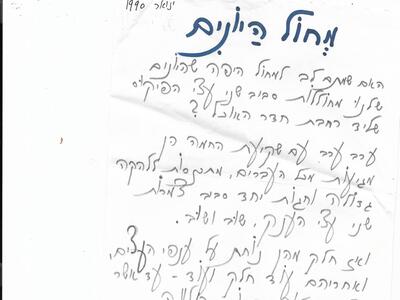 ינואר 1990
מְחוֹל הַיּוֹנִים
האם שמתם לב למחול היפה שהיונים
שלנו מחוללות סביב שני עצי הפיקוס
שליד רחבת חדר האוכל?
ערב ערב עם שקיעת החמה הן
מגיעות מכל העברים, מתכנסות ללהקה
גדולה וחגות יחד סביב צמרות
שני עצי הענק, שוב ושוב.
ואז חלק מהן נוחת על ענפי העצים,
ואחריהם עוד חלק ועוד - עד אשר